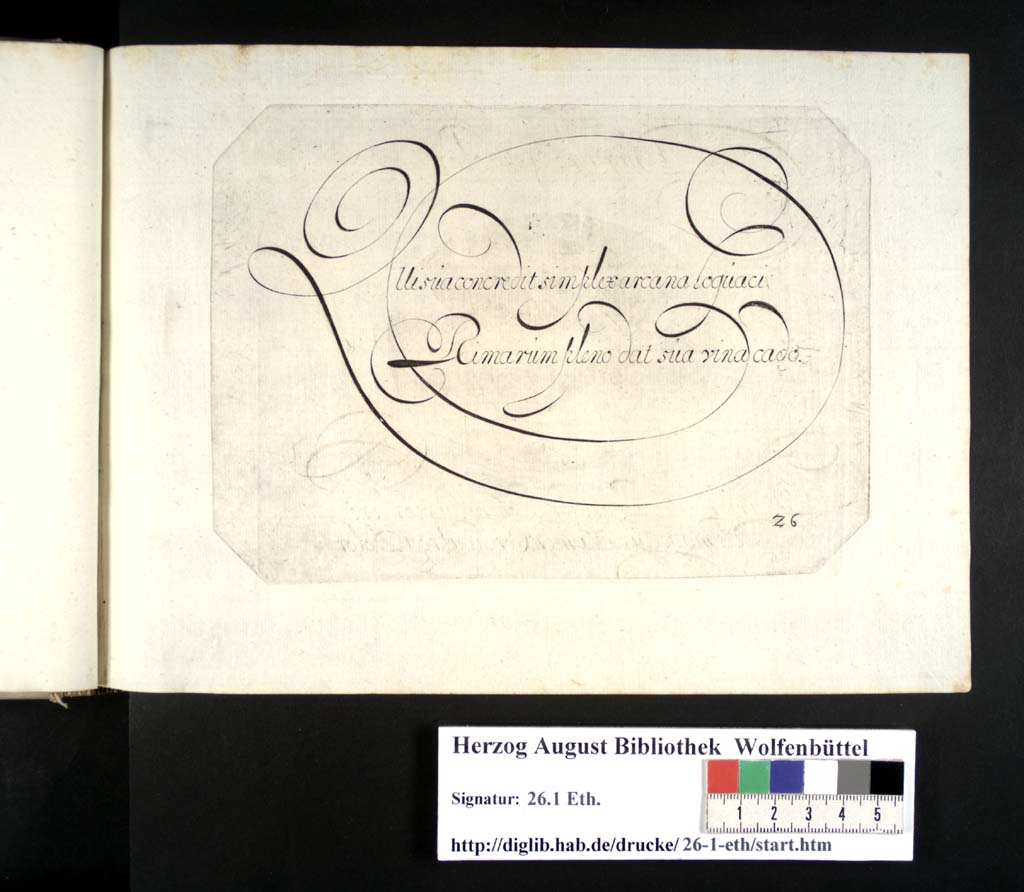 QUi súa concredit simplex arcana loqúaci:
Rimarúm pleno dat súa vina cado.
26
Herzog August Bibliothek Wolfenbüttel
Signatur: 26.1 Eth.
1 2 3 4 5
http://diglib.hab.de/drucke/ 26-1-eth/start.htm